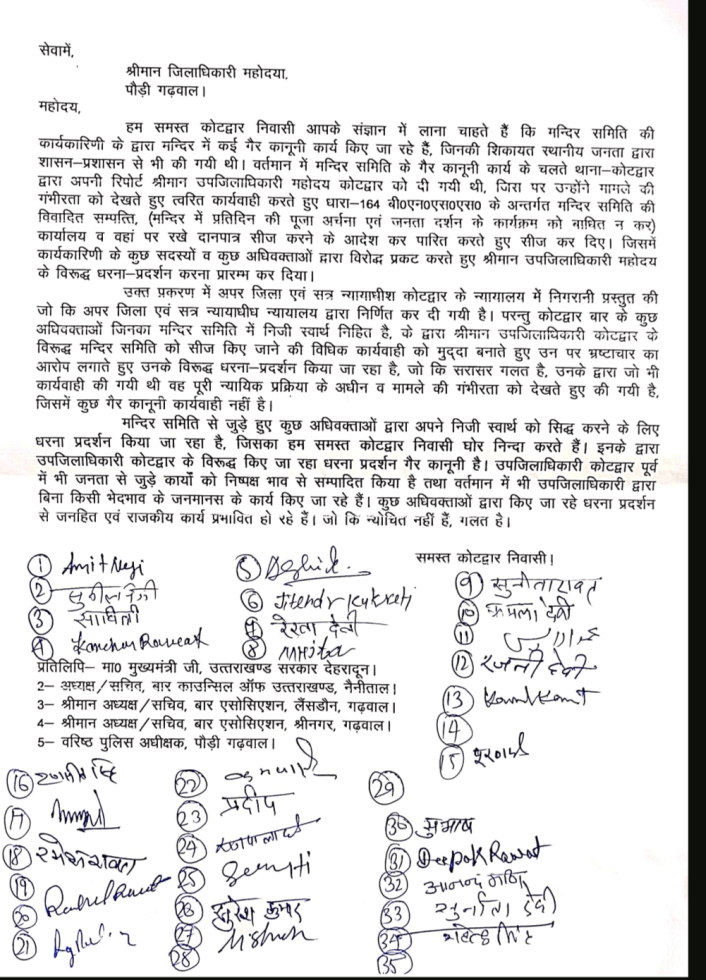 सेवामें,
श्रीमान जिलाधिकारी महोदया.
पौड़ी गढ़वाल।
महोदय,
हम समस्त कोटद्वार निवासी आपके संज्ञान में लाना चाहते हैं कि मन्दिर समिति की
कार्यकारिणी के द्वारा मन्दिर में कई गैर कानूनी कार्य किए जा रहे हैं, जिनकी शिकायत स्थानीय जनता द्वारा
शासन–प्रशासन से भी की गयी थी। वर्तमान में मन्दिर समिति के गैर कानूनी कार्य के चलते थाना–कोटद्वार
द्वारा अपनी रिपोर्ट श्रीमान उपजिलाधिकारी महोदय कोटद्वार को दी गयी थी, जिस पर उन्होंने मामले की
गंभीरता को देखते हुए त्वरित कार्यवाही करते हुए धारा–164 बी०एन०एस०एस० के अन्तर्गत मन्दिर समिति की
विवादित सम्पत्ति, (मन्दिर में प्रतिदिन की पूजा अर्चना एवं जनता दर्शन के कार्यक्रम को बाधित न कर)
कार्यालय व वहां पर रखे दानपात्र सीज करने के आदेश कर पारित करते हुए सीज कर दिए। जिसमें
कार्यकारिणी के कुछ सदस्यों व कुछ अधिवक्ताओं द्वारा विरोध प्रकट करते हुए श्रीमान उपजिलाधिकारी महोदय
के विरूद्ध धरना–प्रदर्शन करना प्रारम्भ कर दिया।
उक्त प्रकरण में अपर जिला एवं सत्र न्यायाधीश कोटद्वार के न्यायालय में निगरानी प्रस्तुत की
जो कि अपर जिला एवं सत्र न्यायाधीध न्यायालय द्वारा निर्णित कर दी गयी है। परन्तु कोटद्वार बार के कुछ
अधिवक्ताओं जिनका मन्दिर समिति में निजी स्वार्थ निहित है, के द्वारा श्रीमान उपजिलाधिकारी कोटद्वार के
विरूद्ध मन्दिर समिति को सीज किए जाने की विधिक कार्यवाही को मुद्दा बनाते हुए उन पर भ्रष्टाचार का
आरोप लगाते हुए उनके विरूद्ध धरना–प्रदर्शन किया जा रहा है, जो कि सरासर गलत है, उनके द्वारा जो भी
कार्यवाही की गयी थी वह पूरी न्यायिक प्रक्रिया के अधीन व मामले की गंभीरता को देखते हुए की गयी है,
जिसमें कुछ गैर कानूनी कार्यवाही नहीं है।
मन्दिर समिति से जुड़े हुए कुछ अधिवक्ताओं द्वारा अपने निजी स्वार्थ को सिद्ध करने के लिए
धरना प्रदर्शन किया जा रहा है, जिसका हम समस्त कोटद्वार निवासी घोर निन्दा करते हैं। इनके द्वारा
उपजिलाधिकारी कोटद्वार के विरूद्ध किए जा रहा धरना प्रदर्शन गैर कानूनी है। उपजिलाधिकारी कोटद्वार पूर्व
में भी जनता से जुड़े कार्यों को निष्पक्ष भाव से सम्पादित किया है तथा वर्तमान में भी उपजिलाधिकारी द्वारा
बिना किसी भेदभाव के जनमानस के कार्य किए जा रहे हैं। कुछ अधिवक्ताओं द्वारा किए जा रहे धरना प्रदर्शन
से जनहित एवं राजकीय कार्य प्रभावित हो रहे हैं। जो कि न्योचित नहीं हैं, गलत है।
समस्त कोटद्वार निवासी!
1 Amit Negi
2
3 सावित्री
4 Kanchan Rawat
5
6 Jitendr Kukreti
7 रेखा देवी
8
9 सुनीता रावत
10 कमला देवी
11
12 रजनी देवी
13 Kamal Kant
14
15
प्रतिलिपि– मा० मुख्यमंत्री जी, उत्तराखण्ड सरकार देहरादून।
2– अध्यक्ष/सचिव, बार काउन्सिल ऑफ उत्तराखण्ड, नैनीताल।
3– श्रीमान अध्यक्ष/सचिव, बार एसोसिएशन, लैंसडौन, गढ़वाल।
4– श्रीमान अध्यक्ष/सचिव, बार एसोसिएशन, श्रीनगर, गढ़वाल।
5– वरिष्ठ पुलिस अधीक्षक, पौड़ी गढ़वाल।
16
17
18
19
20 Rahul Rawat
21
22
23 प्रदीप
24
25
26 सुरेश कुमार
27
28
29
30 सुभाष
31 Deepak Rawat
32
33 सुनीता देवी
34
35